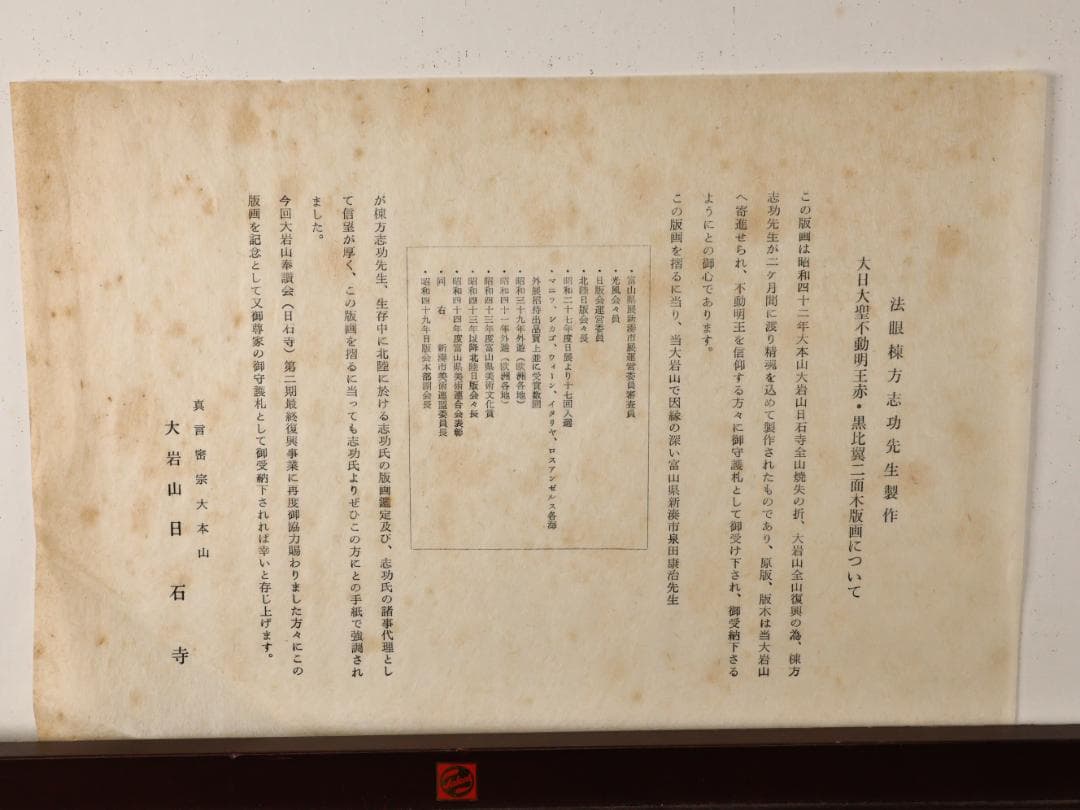 法眼棟方志功先生製作
大日大聖不動明王赤・黒比翼二面木版画について
この版画は昭和四十二年大本山大岩山日石寺全山焼失の折、大岩山全山復興の為、棟方
志功先生が二ケ月間に渡り精魂を込めて製作されたものであり、原版、版木は当大岩山
へ寄進せられ、不動明王を信仰する方々に御守護札として御受け下され、御受納下さる
ようにとの御心であります。
この版画を摺るに当り、当大岩山で因縁の深い富山県新湊市泉田康治先生
・富山県展新湊市展運営委員審査員
・光風会々員
・日版会運営委員
・北陸日版会々長
・昭和二十七年度日展より十七回入選
・マニラ、シカゴ、ウィーン、イタリヤ、ロスアンゼルス各海
外展招待出品賞上並に受賞数回
・昭和三十九年外遊(欧洲各地)
・昭和四十一年外遊(欧洲各地)
・昭和四十三年度富山県美術文化賞
・昭和四十三年以降北陸日版会々長
・昭和四十四年度富山県美術連合会表彰
・同右 新湊市美術連盟委員長
・昭和四十九年日版会本部副会長
が棟方志功先生、生存中に北陸に於ける志功氏の版画鑑定及び、志功氏の諸事代理とし
て信望が厚く、この版画を摺るに当っても志功氏よりぜひこの方にとの手紙で強調され
ました。
今回大岩山奉讃会(日石寺)第二期最終復興事業に再度御協力賜わりました方々にこの
版画を記念として又御尊家の御守護札として御受納下されれば幸いと存じ上げます。
真言密宗大本山
大岩山日石寺